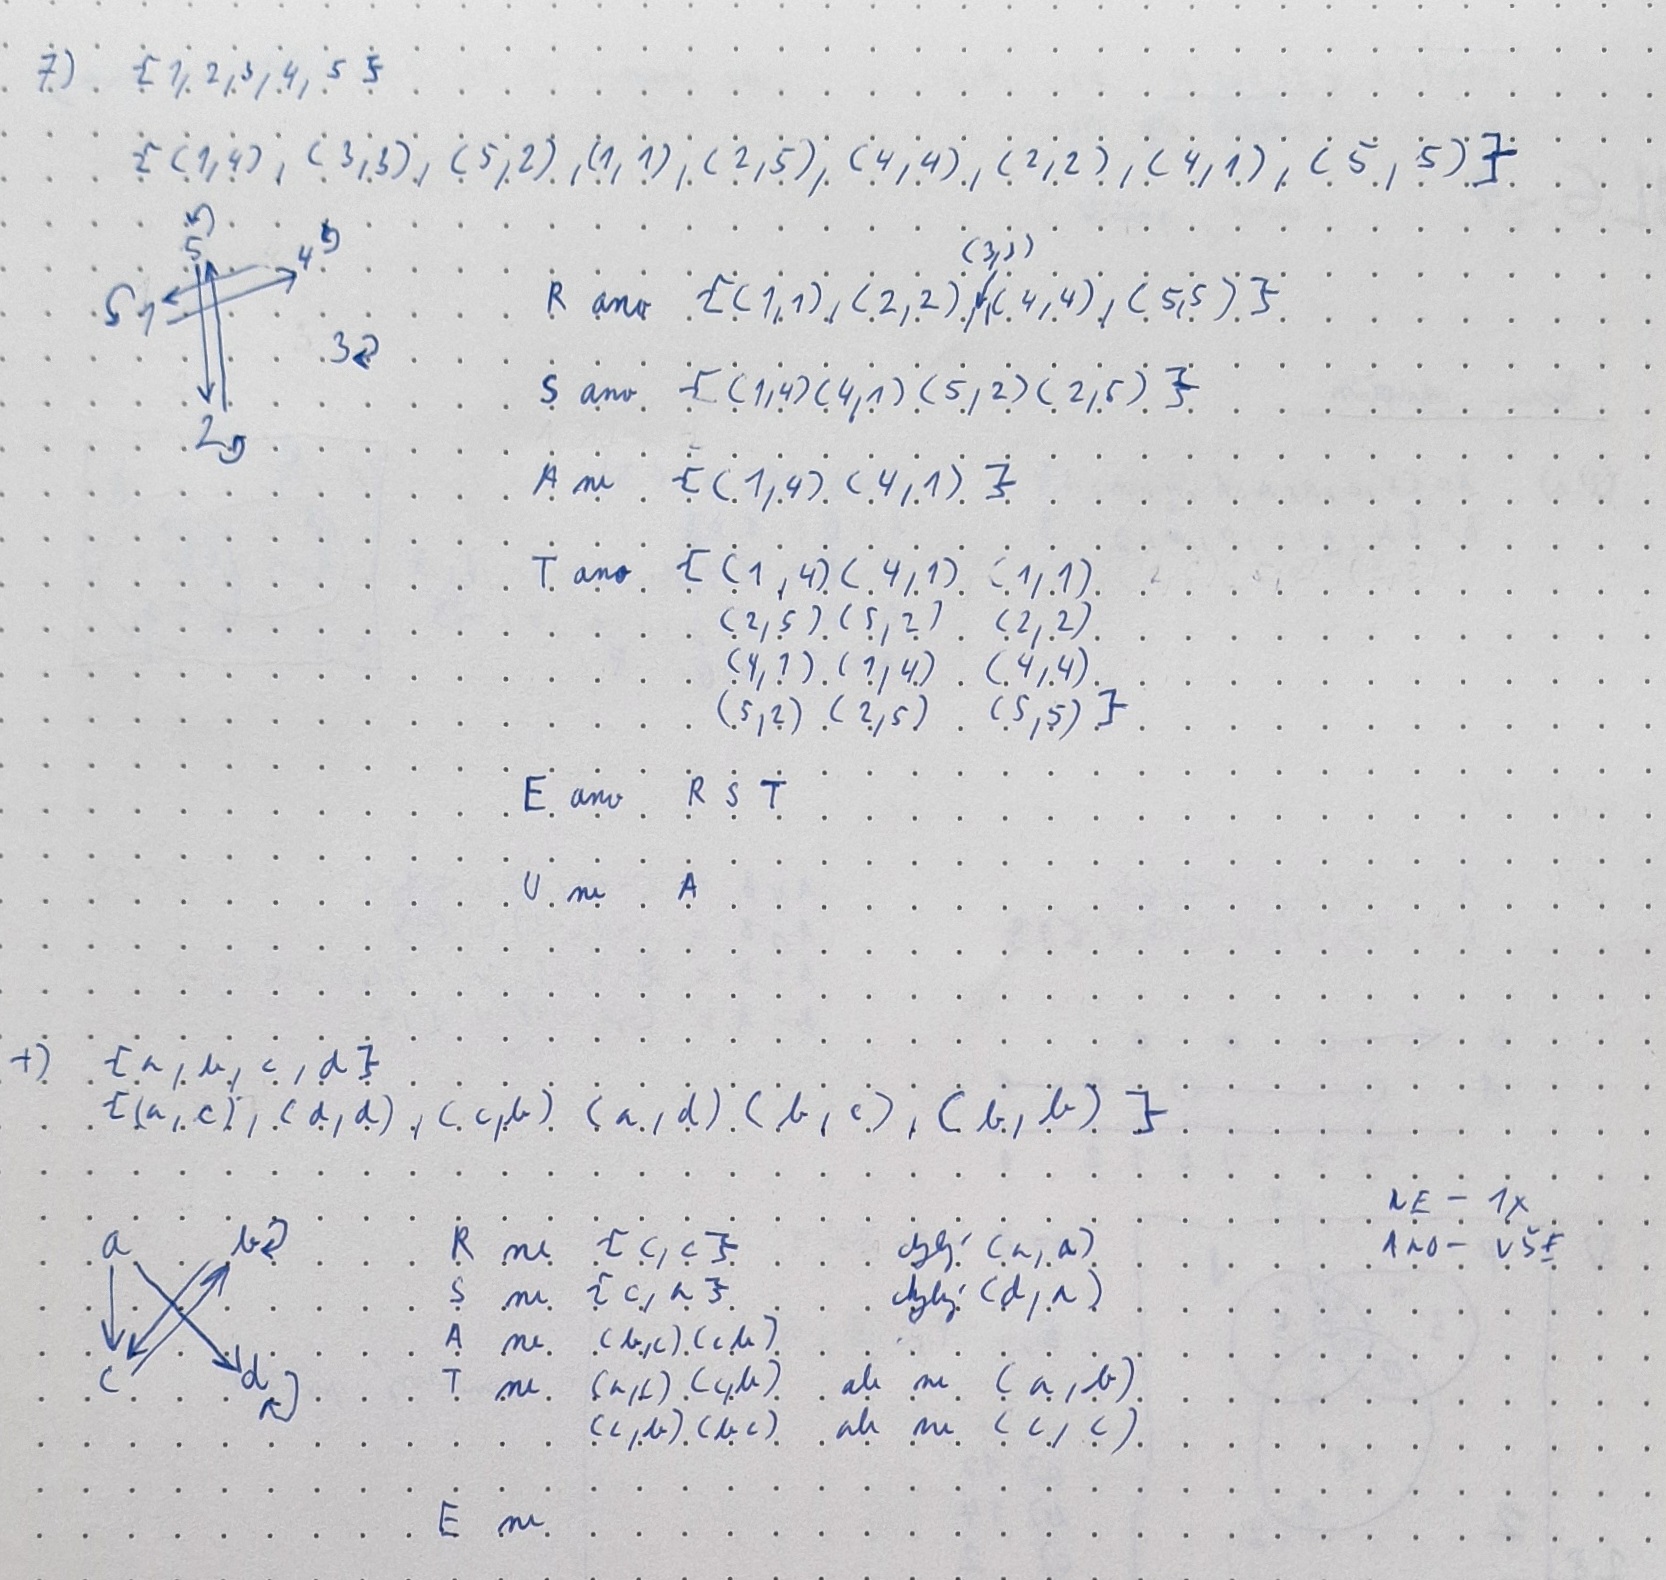 7) {1,2,3,4,5}
{(1,4), (3,3), (5,2), (1,1), (2,5), (4,4), (2,2), (4,1), (5,5)}
5
4
1
3
2
(3,3)
R ano {(1,1), (2,2), (4,4), (5,5)}
S ano {(1,4)(4,1)(5,2)(2,5)}
A ne {(1,4)(4,1)}
T ano {(1,4)(4,1) (1,1)
(2,5)(5,2) (2,2)
(4,1)(1,4) (4,4)
(5,2)(2,5) (5,5)}
E ano R S T
U ne A
+) {a, b, c, d}
{(a,c), (d,d), (c,b) (a,d)(b,c), (b,b)}
NE - 1x
ANO - VŠE
a b
c d
R ne {c,c} chybí (a,a)
S ne {c,a} chybí (d,a)
A ne (b,c)(c,b)
T ne (a,c)(c,b) ale ne (a,b)
(c,b)(b,c) ale ne (c,c)
E ne